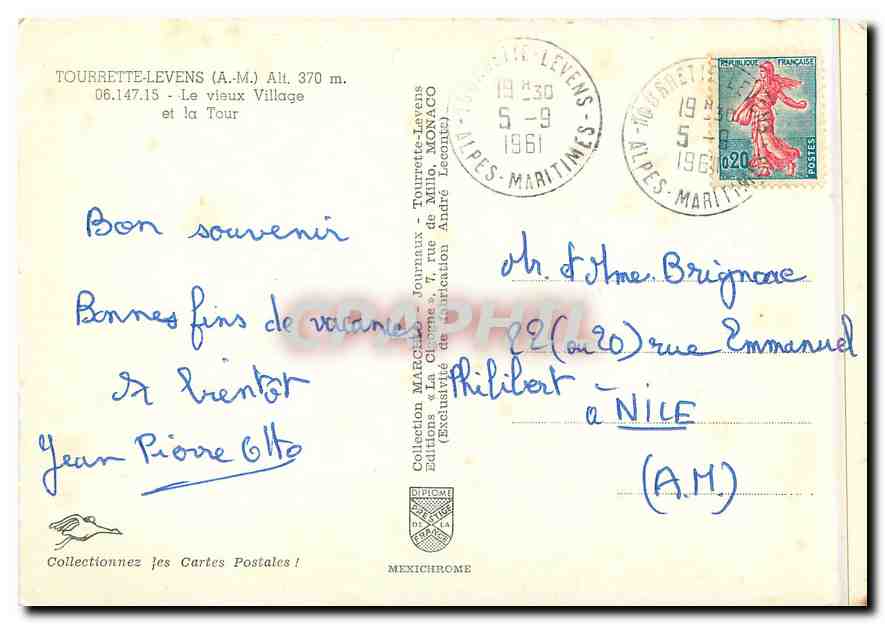 TOURRETTE-LEVENS (A.-M.) Alt. 370 m.
06.147.15 - Le vieux Village
et la Tour
Bon souvenir
Bonnes fins de vacances
et bientôt
Jean Pierre Otto
Collectionnez les Cartes Postales !
Collection MARCELLO - Journaux - Tourrette-Levens
Editions « La Cigogne », 7, rue de Millo, MONACO
(Exclusivité de fabrication André Leconte)
DIPLOME
PRESTIGE
DE LA
FRANCE
MEXICHROME
TOURRETTE-LEVENS
19H30
5 -9
1961
ALPES-MARITIMES
TOURRETTE-LEVENS
19H30
5 -9
1961
ALPES-MARITIMES
REPUBLIQUE FRANÇAISE
0,20
POSTES
Mr. et Mme. Brignone
22 (ou 20) rue Emmanuel
Philibert -
à NICE
(A.M.)
CPAPHIL